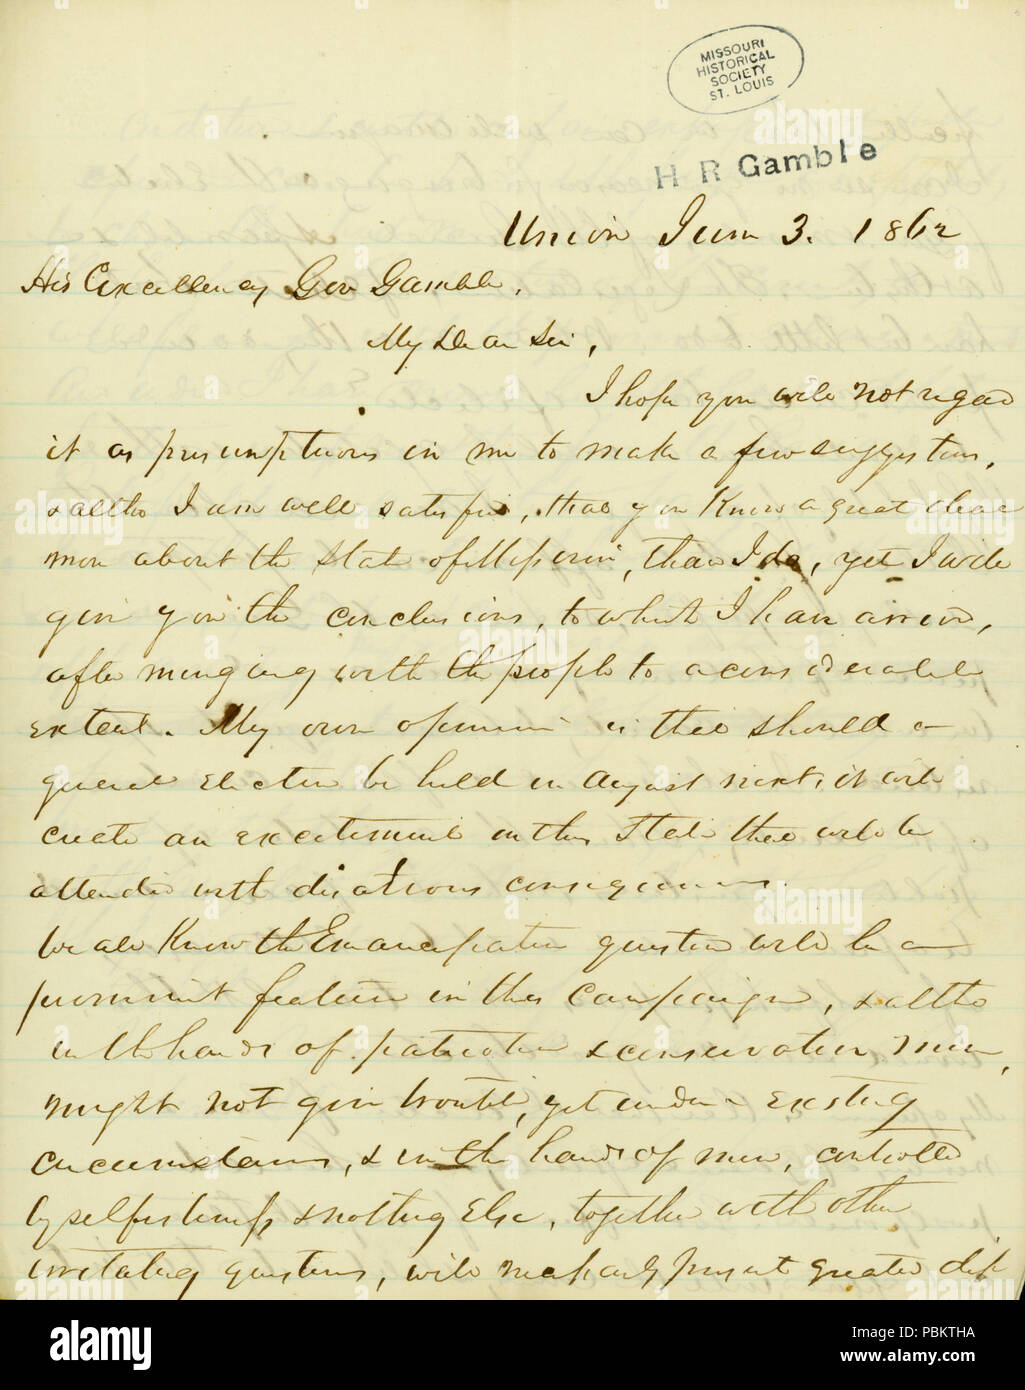 MISSOURI
HISTORICAL
SOCIETY
ST. LOUIS
H R Gamble
Union June 3. 1862
His Excellency Gov Gamble,
My Dear Sir,
I hope you will not regard
it as presumptuous in me to make a few suggestions,
& altho I am well satisfied, that you know a great deal
more about the State of Missouri, than I do, yet I will
give you the conclusions, to which I have arrived,
after mingling with the people to a considerable
extent. My own opinion is that should a
general election be held in August next, it will
create an excitement in this State that will be
attended with disastrous consequences.
We all know the Emancipation question will be a
prominent feature in this campaign, & altho
in the hands of patriotic & conservative men,
might not give trouble, yet under existing
circumstances, & in the hands of men, controlled
by selfishness & nothing else, together with other
irritating questions, will necessarily present greater dif
alamy
Image ID: PBKTHA
www.alamy.com